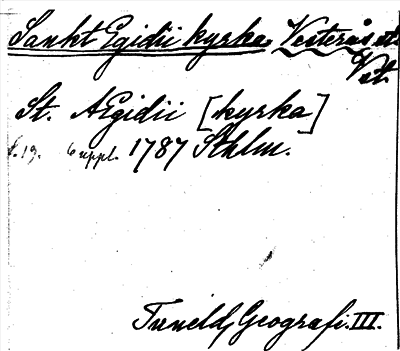 Sankt Egidii kyrka. Vesterås st.
Vst.
St. Ægidii [kyrka]
s. 19. 6 uppl. 1787 Sthlm.
Tuneld, Geografi. III.